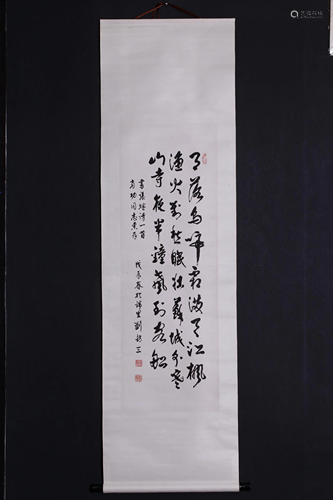 月落烏啼霜滿天江楓
漁火對愁眠姑蘇城外寒
山寺夜半鐘聲到客船
書張繼詩一首
同志惠存
戊辰春於
劉